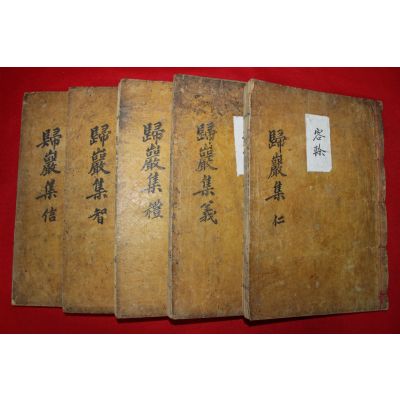 歸巖集 仁
歸巖集 義
歸巖集 禮
歸巖集 智
歸巖集 信